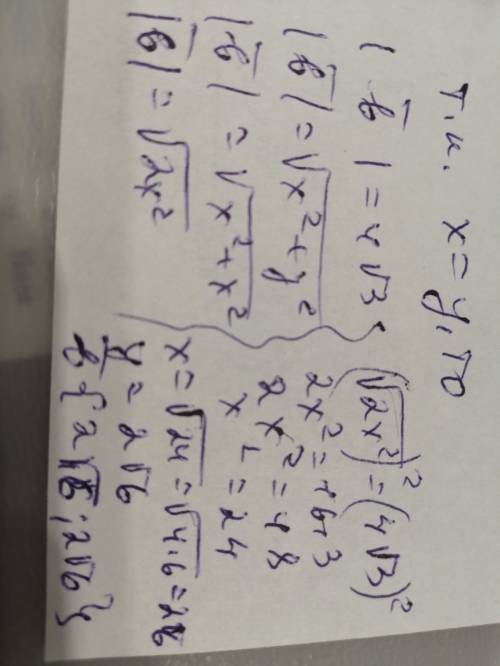 т.к. x=y, то
|b̅| = 4√3
|b̅| = √(x²+y²)
|b̅| = √(x²+x²)
|b̅| = √(2x²)
(√(2x²))² = (4√3)²
2x² = 16·3
2x² = 48
x² = 24
x = √24 = √(4·6) = 2√6
y = 2√6
b̅{2√6; 2√6}